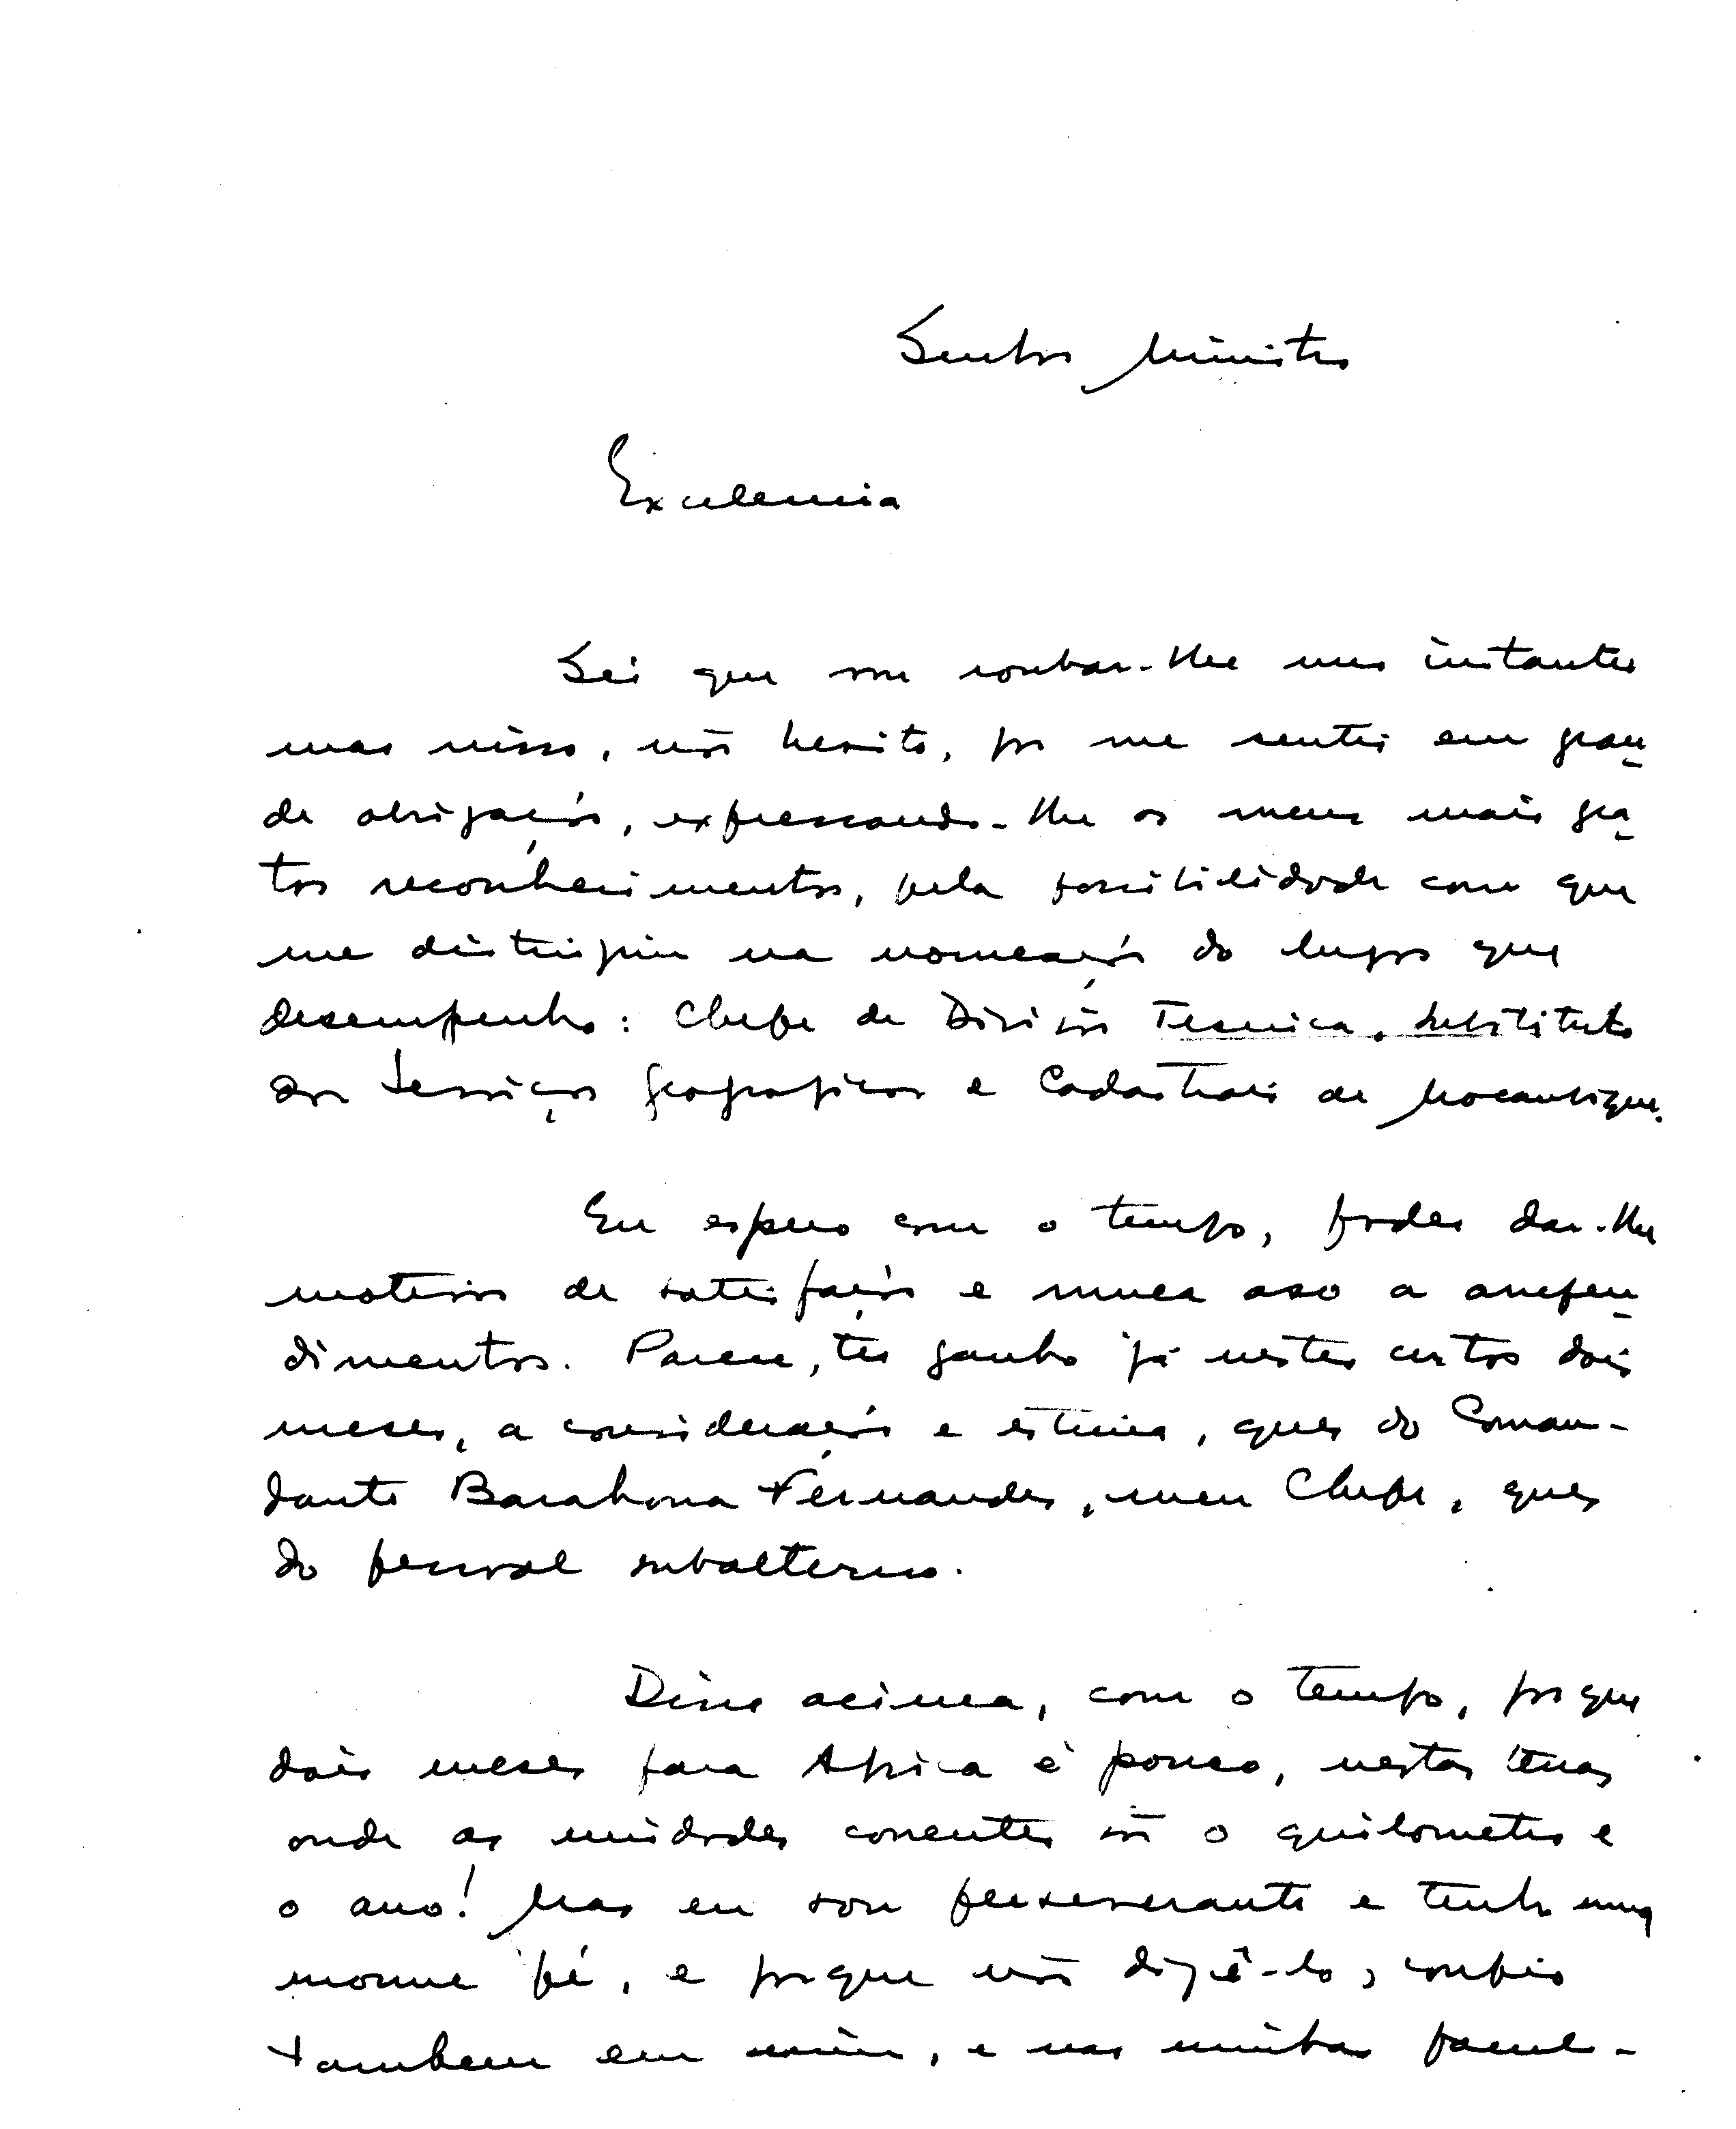 Senhor Ministro
Excelencia
Sei que vou roubar-lhe uns instantes
mas nisso, não hesito, por me sentir em gran
de obrigação, expressando-lhe os meus mais gra
tos reconhecimentos, pela possibilidade com que
me distinguiu na nomeação do lugar que
desempenho: Chefe de Divisão Tecnica, substituto
dos Serviços Geograficos e Cadastrais de Mocambique.
Eu espero com o tempo, poder dar-lhe
motivos de satisfação e nunca aso a arrepen
dimentos. Parece, ter ganho já nestes curtos dois
meses, a consideração e estima, quer do Coman-
dante Barahona Fernandes, meu Chefe, quer
do pessoal subalterno.
Disse acima, com o tempo, porque
dois meses para Africa é pouco, nestas terras
onde as unidades correntes são o quilometro e
o ano! Mas eu sou perseverante e tenho uma
enorme fé, e porque não dizê-lo, confio
tambem em mim, e nas minhas facul-